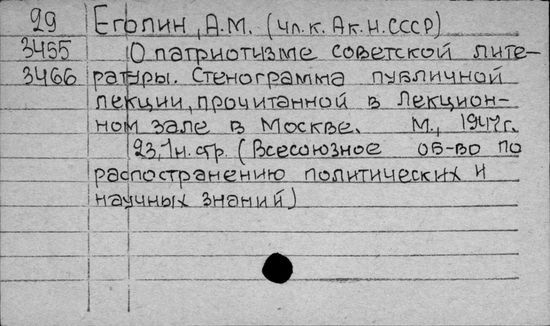 29 Еголин, А.М. (чл.к. Ак.н. СССР)
3455 О патриотизме советской лите-
3466 ратуры. Стенограмма публичной
лекции, прочитанной в Лекцион-
ном зале в Москве. М., 1947г.
23,1н.стр. (Всесоюзное об-во по
распостранению политических и
научных знаний)